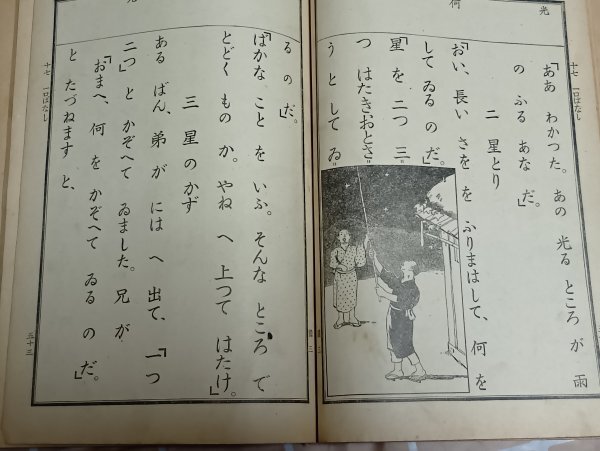 光
何
十七 一口ばなし
「ああ わかつた。あの 光る ところ が 雨
の ふる あな だ。」
二 星とり
「おい、長い さを を ふりまはして、何 を
して ゐる の だ。」
「星 を 二つ 三
つ はたきおとさ
う と して ゐ
る の だ。」
「ばかな こと を いふ。そんな ところ で
とどく もの か。やね へ 上つて はたけ。」
三 星 の かず
ある ばん、弟 が には へ 出て、「一つ
二つ」と かぞへて ゐました。兄 が
「おまへ、何 を かぞへて ゐる の だ。」
と たづねます と、
十七 一口ばなし
五十三